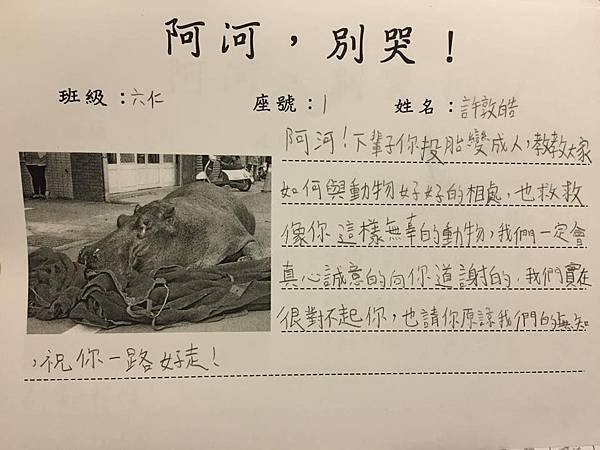 阿河，別哭！
班級：六仁 座號：1 姓名：許敦皓
阿河！下輩子你投胎變成人，教教大家
如何與動物好好的相處，也救救
像你這樣無辜的動物，我們一定會
真心誠意的向你道謝的，我們實在
很對不起你，也請你原諒我們的無知
，祝你一路好走！